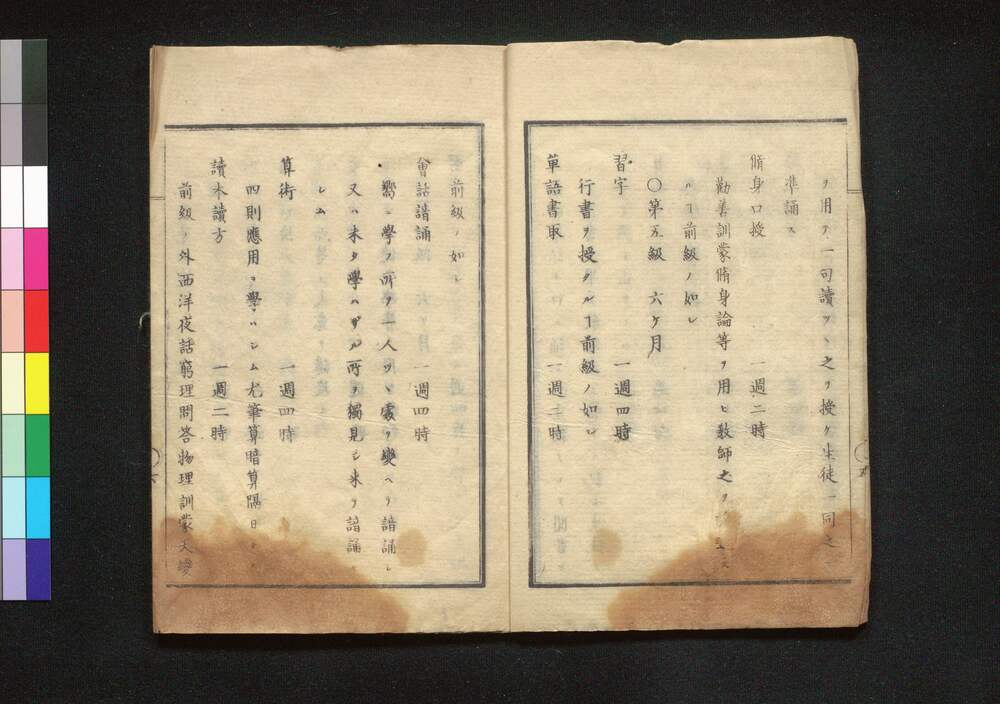 ヲ用ヰ一句讀ツヽ之ヲ授ク生徒一同之
準誦ス
脩身口授 一週二時
勸善訓蒙脩身論等ヲ用ヒ教師之ヲ
ヿ前級ノ如シ
〇第五級 六ケ月
習字 一週四時
行書ヲ授クルヿ前級ノ如シ
單語書取 一週二時
前級ノ如シ
會話諳誦 一週四時
嚮ニ學フ所ヲ一人ツヽ處ヲ變ヘテ諳誦シ
又ハ未タ學ハザル所ヲ獨見シ來リ諳誦セ
シム
算術 一週四時
四則應用ヲ學ハシム尤筆算暗算隔日
讀本讀方 一週二時
前級ノ外西洋夜話窮理問答物理訓蒙天變